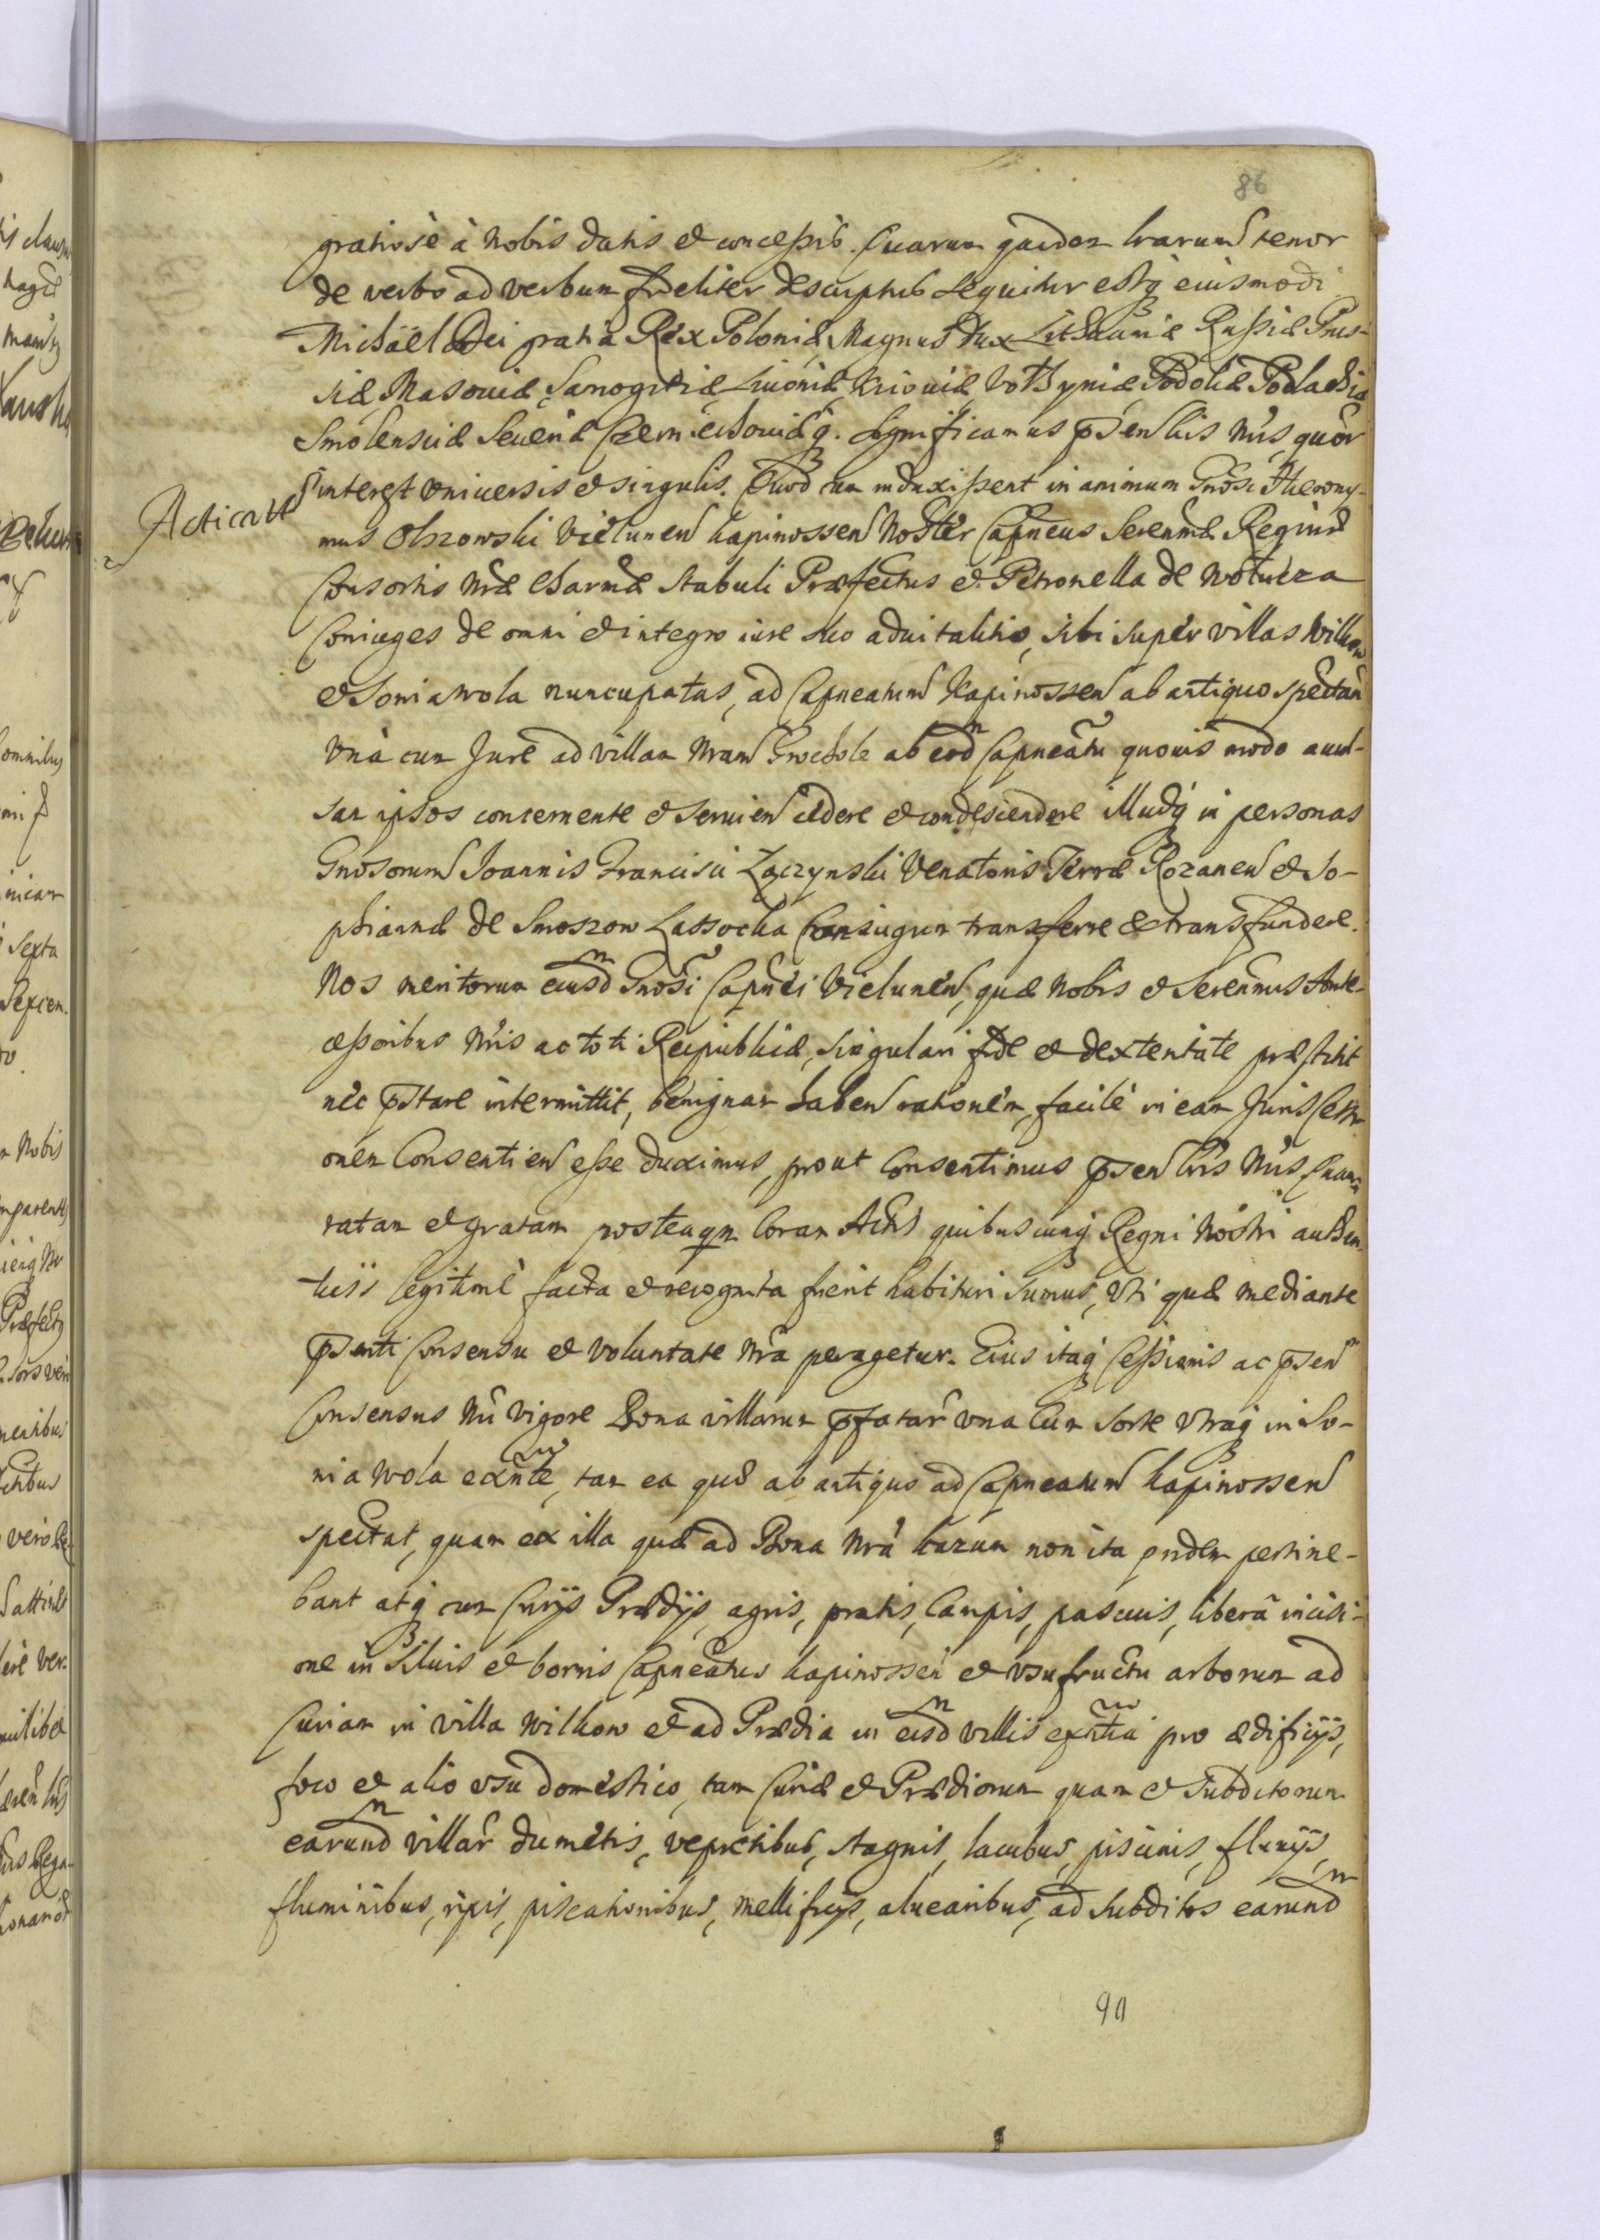 86
gratiosè à Nobis datis et concessis. Quarum quidem lrarum tenor
de verbo ad verbum fideliter descriptus sequitur estq eiusmodi
Michaël Dei gratia Rex Poloniæ, Magnus Dux Lithuaniæ Russiæ Prus-
siæ, Masouiæ, Samogitiæ, Liuoniæ, Kiiouiæ, Volhyniæ, Podoliæ Podlachiæ
Smolensciæ Seueriæ Czerniechouiæq. Significamus psentibus Nris, quor
Acticatio
interest vniuersis et singulis. Quod cum induxissent in animum Gnosi Hierony-
mus Olszowski Vielunen kapinossen Noster Capneus Serenmæ Reginæ
Consortis Nræ Charmæ Stabuli Præfectus et Petronella de Wolucza
Coniuges de omni et integro iure suo aduitalitio, sibi super villas Wilkow
et Soniawola nuncupatas, ad Capneatum Kapinossen ab antiquo spectan
vnà cum Jure ad villam Nram Grochole ab eod Capneatu quouis modo auul-
sam ipsos concernente et seruien cædere et condescendere illudq in personas
Gnosorum Joannis Francisci Łączynski Venatoris Terræ Rozanen et So-
phiannæ de Smoszow Lassocka Coniugum transferre et transfundere.
Nos meritorum eiusd Gnosi Capnei Vielunen, quæ Nobis et Serenmis Ante-
cessoribus Nris ac toti Reipublicæ, singulari fide et dexteritate præstitit
nec pstare intermittit, benignam haben rationem, facilè in eam Juris Cessi-
onem Consentien esse duximus, prout Consentimus psen lris Nris
ratam et gratam posteaqm Coram Actis quibuscunq Regni Nostri authen-
ticis legitimè facta et recognita fuerit habituri sumus, vti quæ mediante
psenti Consensu et voluntate Nra peragetur. Eius itaq Cessionis ac psen
Consensus Nri vigore Bona villarum pfatar vna Cum Sorte vtraq in So-
nia Wola exnte, tam ea quæ ab antiquo ad Capneatum kapinossen
spectat, quam ex illa quæ ad Bona Nra kazum non ita pridem pertine-
bant atq cum Curys Prædys, agris, pratis, Campis, pascuis, liberâ incisi-
one in Siluis et borris Capneatus kapinossen et vsufructu arborum ad
Curiam in villa Wilkow et ad Prædia in eisd villis exntia pro ædificijs,
foco et alio vsu domestico, tam Curiæ et Prædiorum quam et Subditorum
earund villar dumetis, vepretibus, stagnis, lacubus, piscinis, fluuijs,
fluminibus, ripis, piscationibus, mellificys, aluearibus, ad subditos earund
90